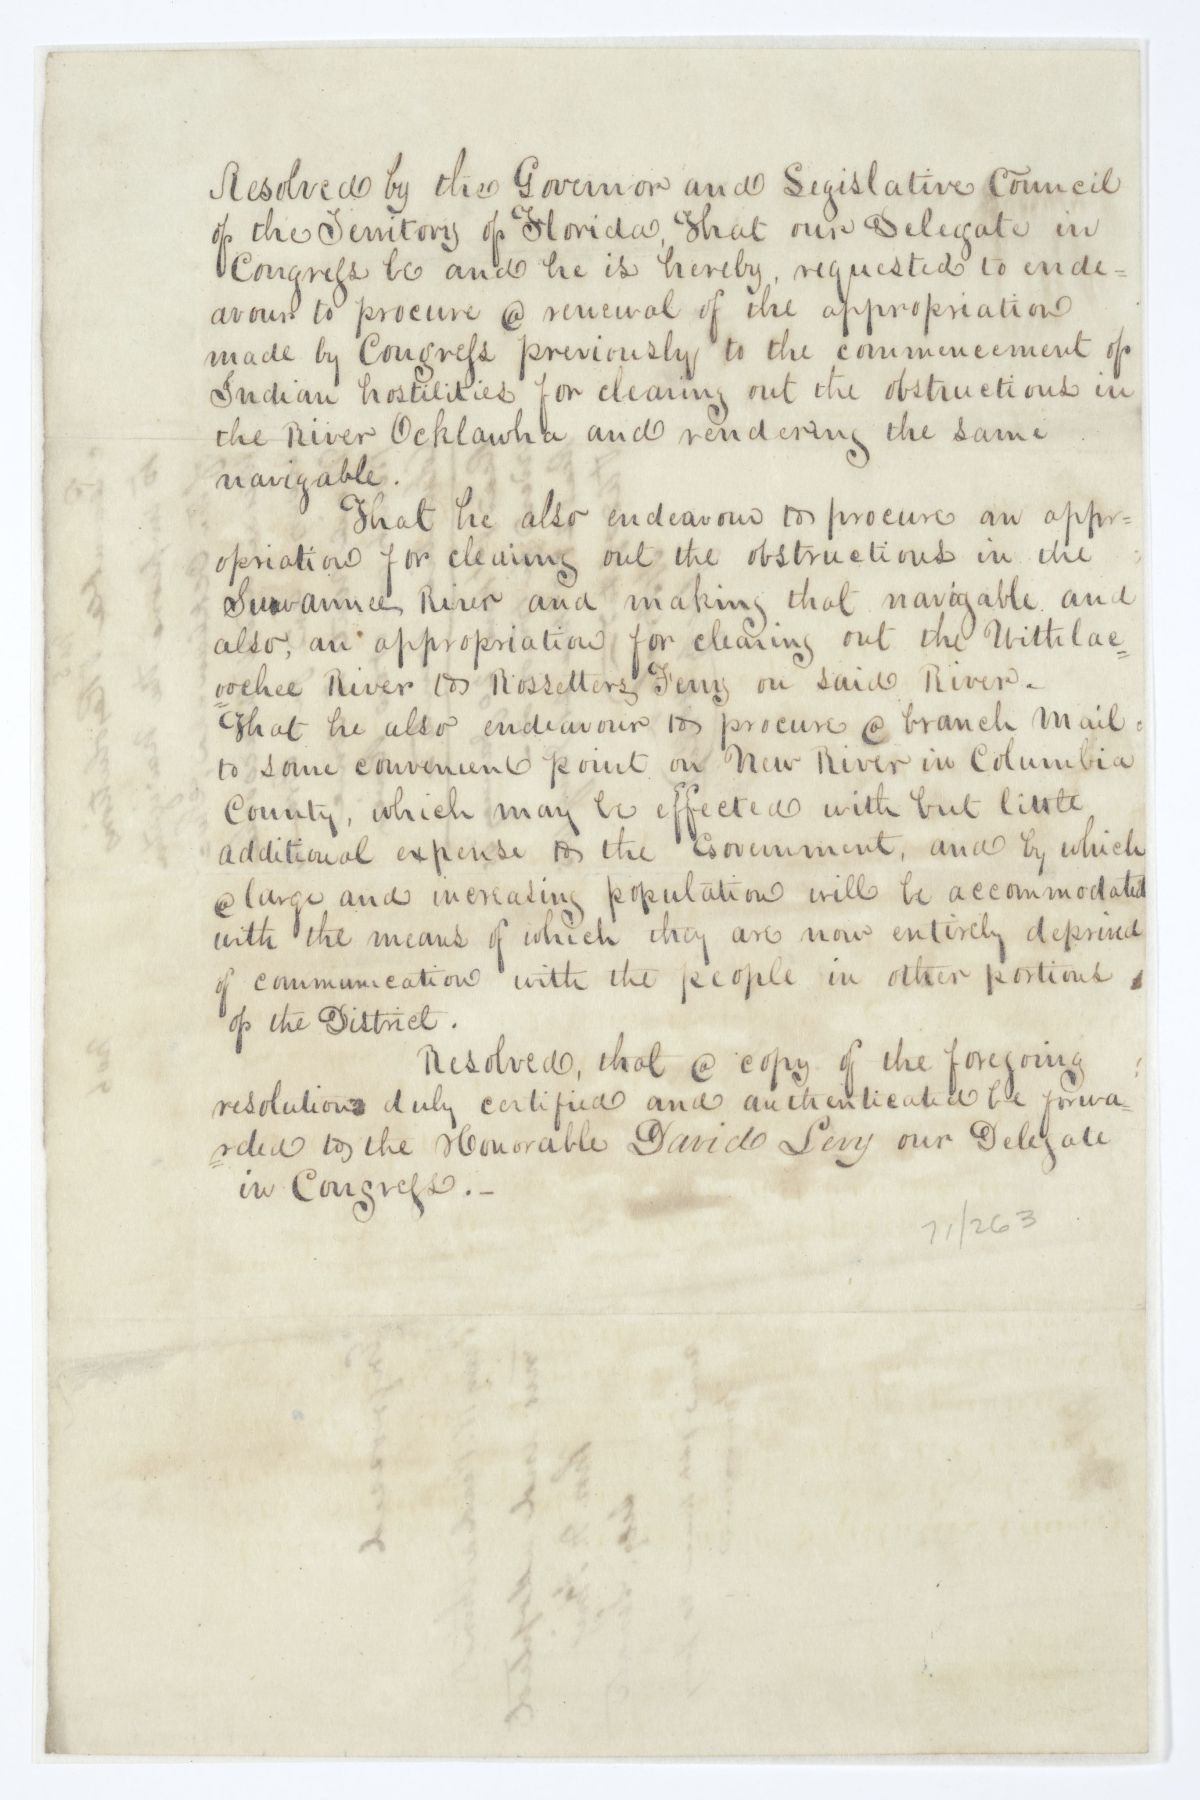 Resolved by the Governor and Legislative Council
of the Territory of Florida, That our Delegate in
Congress be and he is hereby, requested to ende=
avour to procure a renewal of the appropriation
made by Congress previously to the commencement of
Indian hostilities for clearing out the obstructions in
the River Ocklawha and rendering the same
navigable.
That he also endeavour to procure an appr=
opriation for clearing out the obstructions in the
Suwannee River and making that navigable and
also, an appropriation for clearing out the Withlac=
=oochee River to Rossetters Ferry on said River.
That he also endeavour to procure a branch Mail
to some convenient point on New River in Columbia
County, which may be effected with but little
additional expense to the Government, and by which
a large and increasing population will be accommodated
with the means of which they are now entirely deprived
of communication with the people in other portions
of the District.
Resolved, that a copy of the foregoing
resolutions duly certified and authenticated be forwa=
=rded to the Honorable David Levy our Delegate
in Congress.
71/263